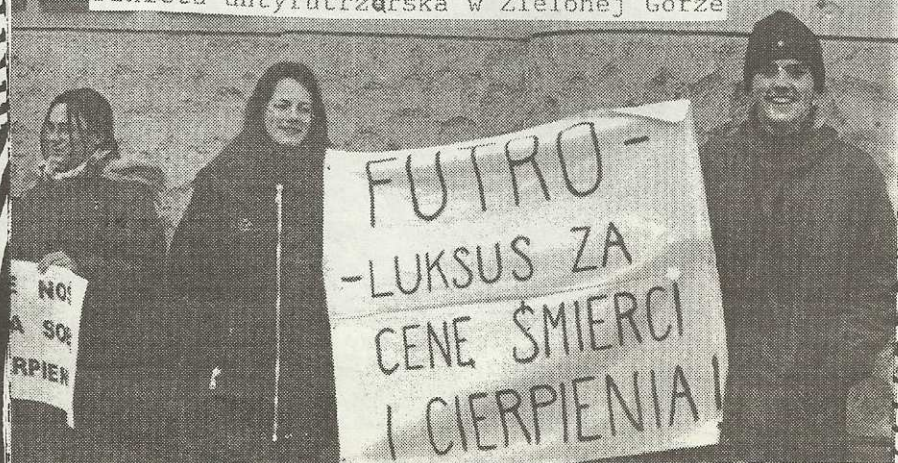 antyfutrzarska w Zielonej Górze
FUTRO -
-LUKSUS ZA
CENĘ ŚMIERCI
I CIERPIENIA!
NOS
A SOB
RPIEN